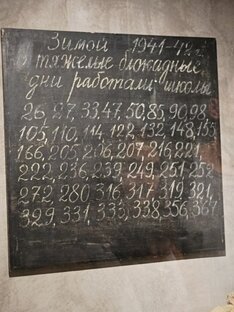 Зимой 1941-42 г.
в тяжелые блокадные
дни работали школы
26, 27, 33, 47, 50, 85, 90, 98,
105, 110, 114, 122, 132, 148, 155,
166, 205, 206, 207, 216, 221,
222, 236, 239, 249, 251, 252
272, 280, 316, 317, 319, 321,
329, 331, 335, 338, 356, 367